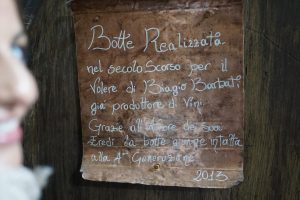 Botte Realizzata
nel secolo Scorso per il
Volere di Biagio Barbati
già produttore di Vini
Grazie all'amore dei suoi
Eredi la botte giunge intatta
alla 4ª Generazione
2013